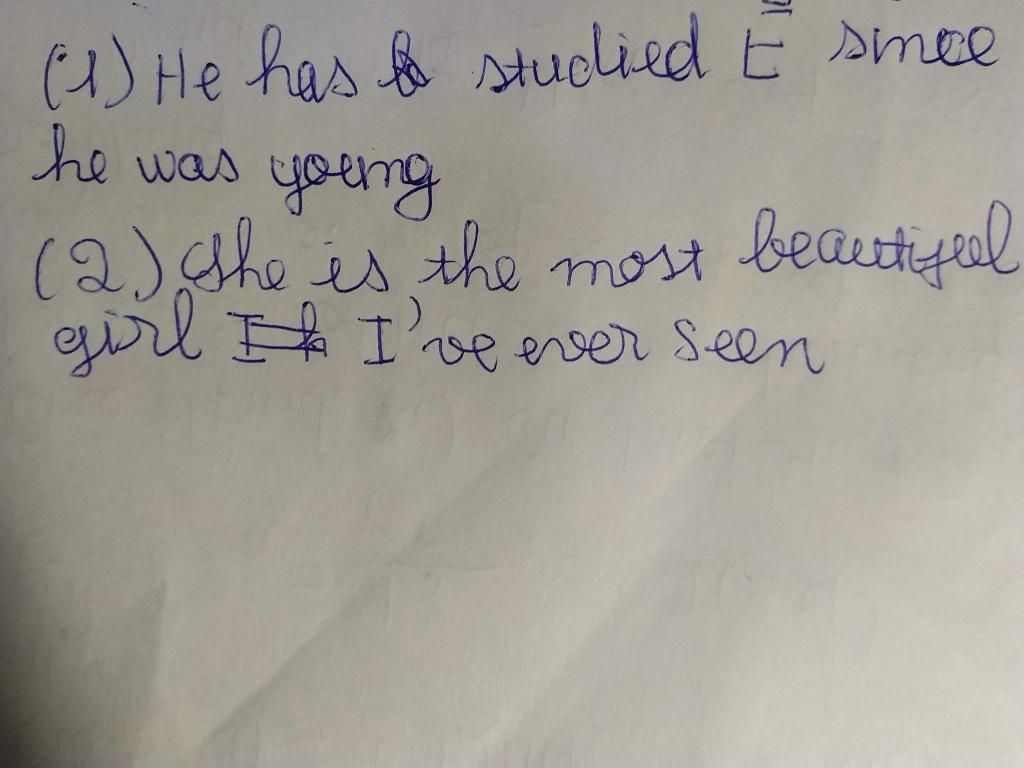 (1) He has studied E since
he was young
(2) She is the most beautiful
girl I've ever seen